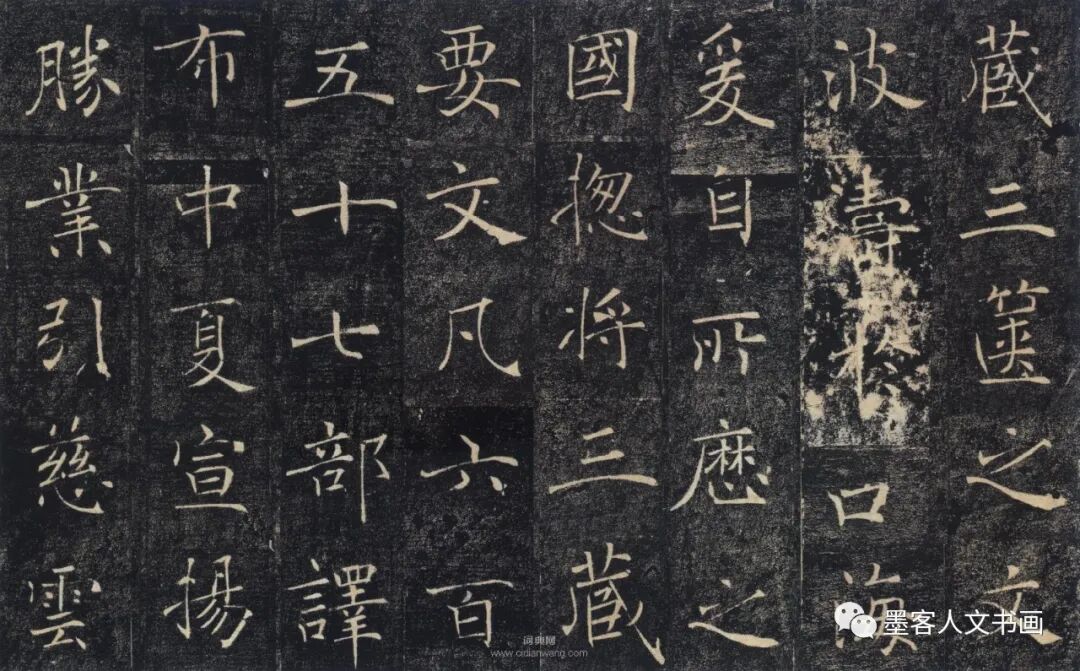 藏三篋之文
波濤於口海
爰自所歷之
國揔將三藏
要文凡六百
五十七部譯
布中夏宣揚
勝業引慈雲
词典网
www.cidianwang.com
墨客人文书画